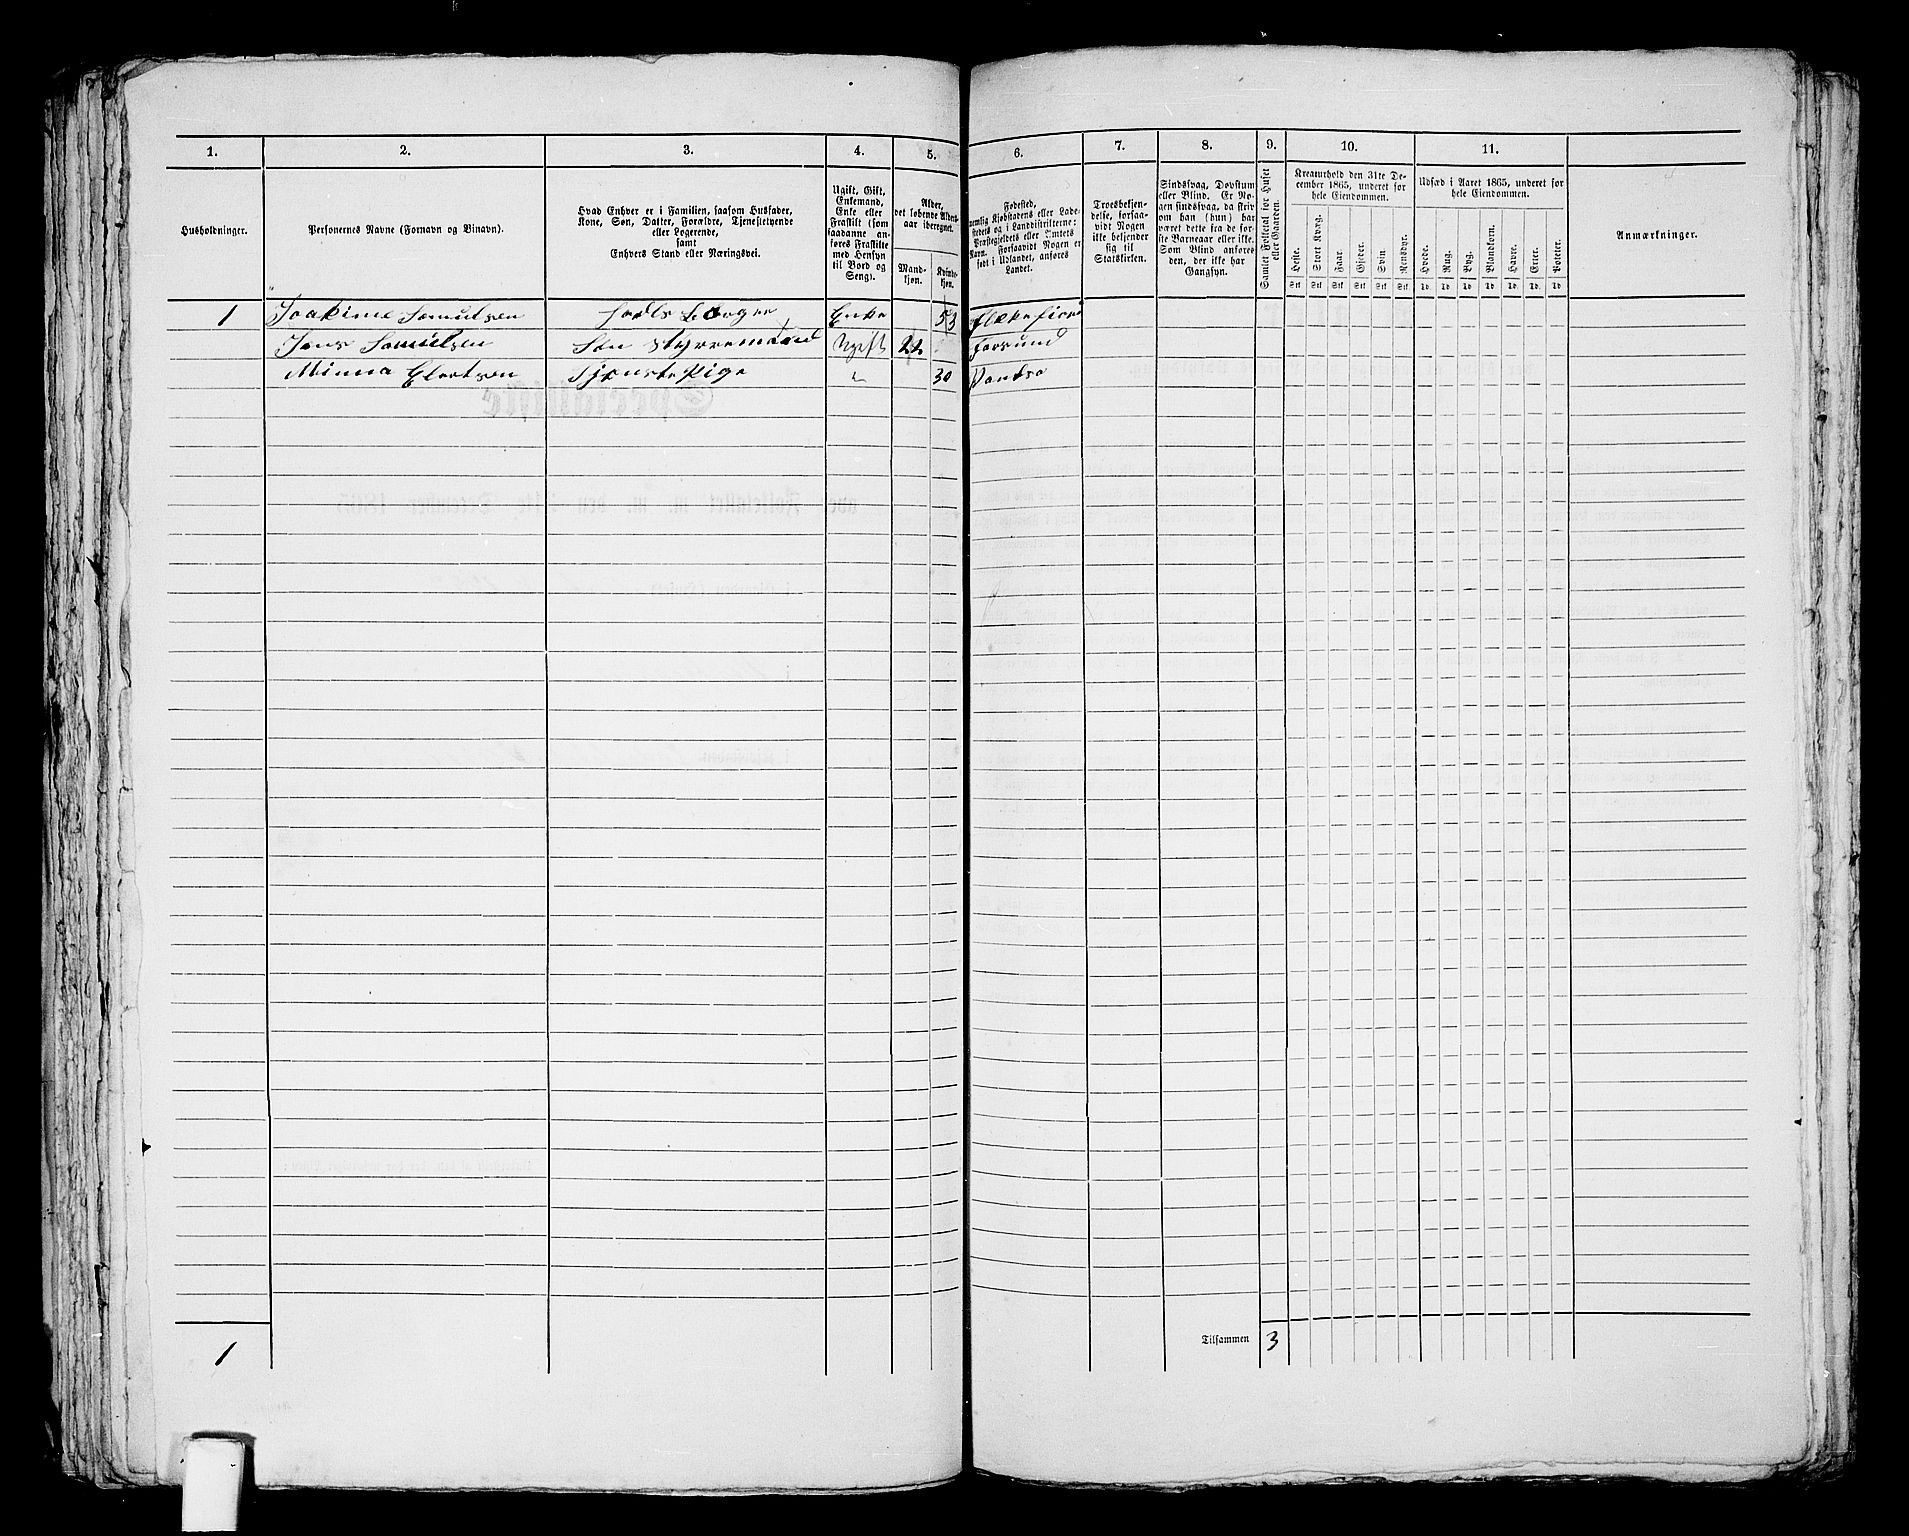 1. 2. 3. 4. 5. 6. 7. 8. 9. 10. 11.
Husholdninger.
Personernes Navne (Fornavn og Binavn).
Hvad Enhver er i Familien, saasom Husfader,
Kone, Søn, Datter, Forældre, Tjenestetyende
eller Logerende,
samt
Enhvers Stand eller Næringsvei.
Ugift, Gift,
Enkemand,
Enke eller
Fraskilt (som
saadanne an-
føres Fraskilte
med Hensyn
til Bord og
Seng).
Alder,
det løbende Alders-
aar iberegnet.
Mand-
kjøn.
Kvinde-
kjøn.
Fødested,
nemlig Kjøbstadens eller Lade-
stedets og i Landdistrikterne:
Præstegjeldets eller Amtets
Navn. Forsaavidt Nogen er
født i Udlandet, anføres
Landet.
Troesbekjen-
delse, forsaa-
vidt Nogen
ikke bekjender
sig til
Statskirken.
Sindssvag, Døvstum
eller Blind. Er No-
gen sindssvag, da skriv
om han (hun) har
været dette fra de før-
ste Barneaar eller ikke.
Som Blind anføres
den, der ikke har
Gangsyn.
Samlet Folketal for Huset
eller Gaarden.
Kreaturhold den 31te De-
cember 1865, underet for
hele Eiendommen.
Heste. Stort Kvæg. Faar. Gjeder. Svin. Rensdyr.
Stk Stk Stk Stk Stk Stk
Udsæd i Aaret 1865, underet for
hele Eiendommen.
Hvede. Rug. Byg. Blandkorn. Havre. Erter. Poteter.
Td Td Td Td Td Td Td
Anmærkninger.
1 Joakime Samulsen Enke 53
Jens Samuelsen Søn Styrremand Ugift 22 Farsund
Minna Elertsen Tjenstepige " 30 Vandsø
Tilsammen 3
1